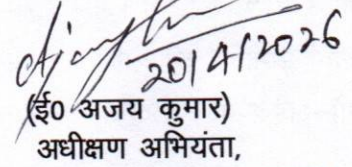 20/4/2026
(ई0 अजय कुमार)
अधीक्षण अभियंता,